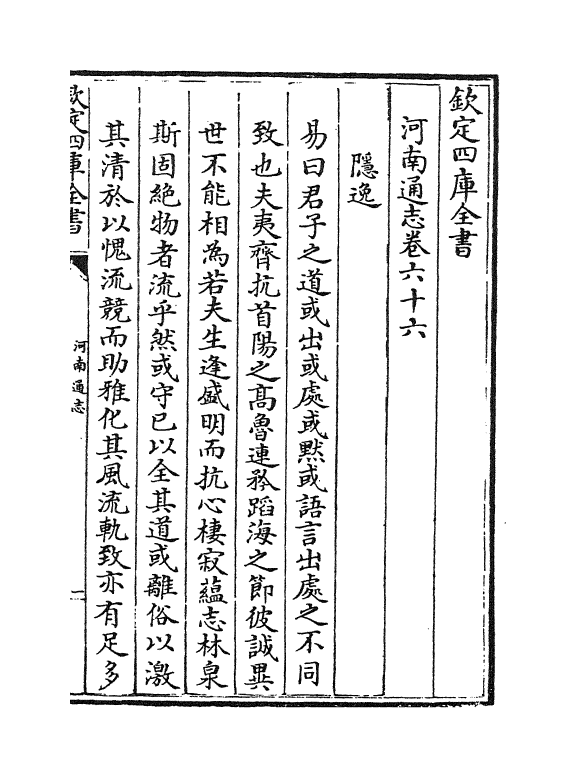 欽定四庫全書
河南通志卷六十六
隱逸
易曰君子之道或出或處或默或語言出處之不同
致也夫夷齊抗首陽之高魯連矜蹈海之節彼誠異
世不能相為若夫生逢盛明而抗心棲寂蘊志林泉
斯固絶物者流乎然或守已以全其道或離俗以激
其清於以愧流競而助雅化其風流軌致亦有足多
欽定四庫全書
河南通志
一